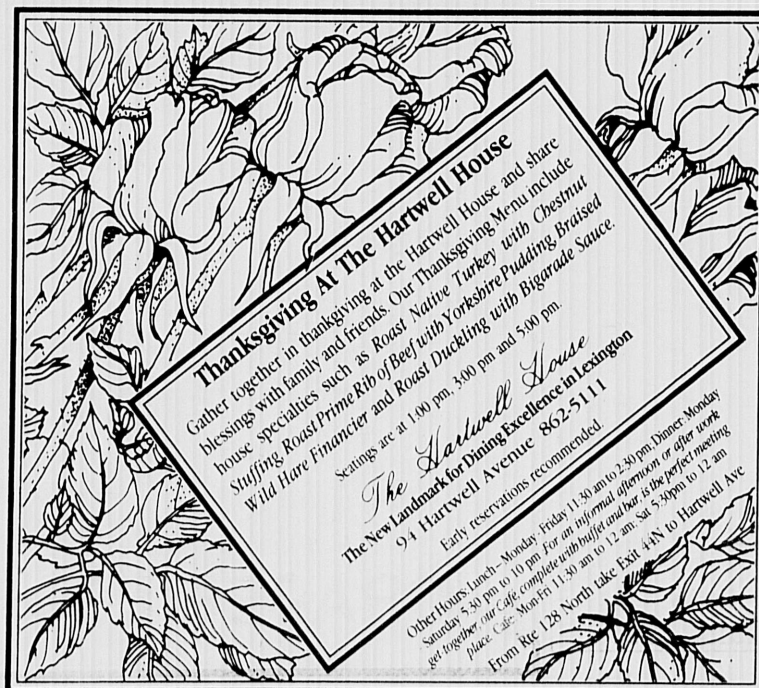 Thanksgiving At The Hartwell House
Gather together in thankgiving at the Hartwell House and share
blessings with family and friends. Our Thanksgiving Menu include
house specialties such as Roast Native Turkey with Chestnut
Stuffing, Roast Prime Rib of Beef with Yorkshire Pudding, Braised
Wild Hare Financier and Roast Duckling with Bigarade Sauce.
Seatings are at 1:00 pm, 3:00 pm and 5:00 pm.
The Hartwell House
The New Landmark for Dining Excellence in Lexington
94 Hartwell Avenue 862-5111
Early reservations recommended.
Other Hours: Lunch – Monday - Friday 11:30 am to 2:30 pm; Dinner: Monday
- Saturday 5:30 pm to 10 pm. For an informal afternoon or after work
get-together, our Café, complete with buffet and bar, is the perfect meeting
place. Café: Mon-Fri 11:30 am to 12 am; Sat 5:30pm to 12 am
From Rte 128 North take Exit 44N to Hartwell Ave